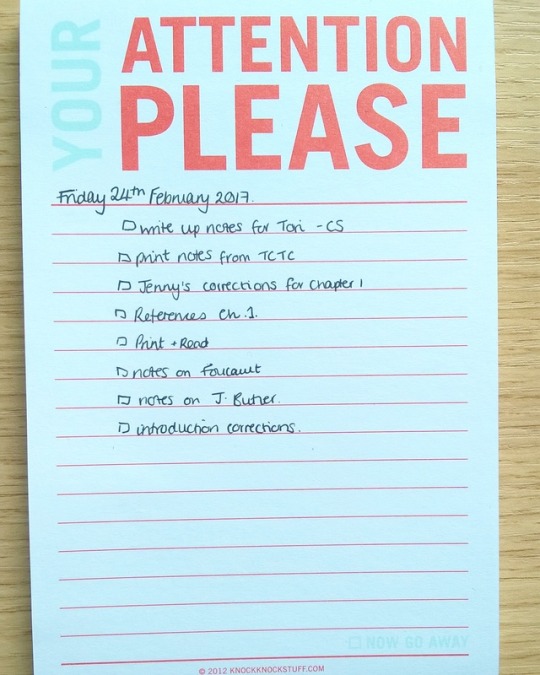 YOUR
ATTENTION
PLEASE
Friday 24th February 2017.
write up notes for Tori - CS
print notes from TCTC
Jenny's corrections for Chapter 1
References Ch.1.
Print + Read
notes on Foucault
notes on J. Butler.
introduction corrections.
NOW GO AWAY
© 2012 KNOCKKNOCKSTUFF.COM